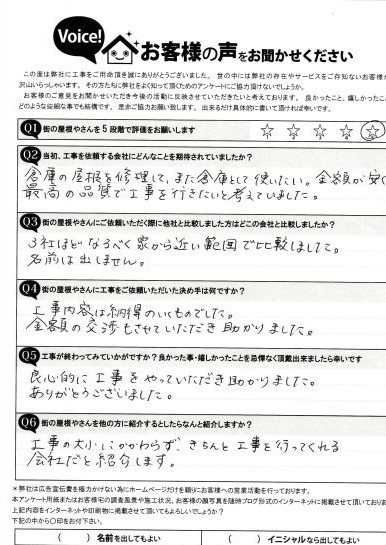 Voice! お客様の声をお聞かせください
この度は弊社に工事をご用命頂き誠にありがとうございました。世の中には弊社の存在やサービスをご存知ないお客様が
沢山いらっしゃいます。その方たちに弊社をよく知って頂くためのアンケートにご協力頂けないでしょうか。
お客様のご意見をお聞かせいただき今後の活動に反映させていただきたいと考えております。良かったこと、嬉しかったこと
どのような些細な事でも結構です。是非ご協力お願い致します。出来るだけ具体的に書いて頂ければ幸いです。
Q1 街の屋根やさんを5段階で評価をお願いします ☆ ☆ ☆ ☆ ☆
Q2 当初、工事を依頼する会社にどんなことを期待されていましたか?
倉庫の屋根を修理して、また倉庫として使いたい。金額が安く
最高の品質で工事を行きたいと考えていました。
Q3 街の屋根やさんにご依頼いただく際に他社と比較しました方はどこの会社と比較しましたか?
3社ほどなるべく家から近い範囲で比較しました。
名前は出しません。
Q4 街の屋根やさんに工事をご依頼いただいた決め手は何ですか?
工事内容は納得のいくものでした。
金額の交渉もさせていただき助かりました。
Q5 工事が終わってみていかがですか?良かった事・嬉しかったことを忌憚なく頂戴出来ましたら幸いです
良心的に工事をやっていただき助かりました。
ありがとうございました。
Q6 街の屋根やさんを他の方に紹介するとしたらなんと紹介しますか?
工事の大小にかかわらず、きちんと工事を行ってくれる
会社だと紹介します。
*弊社は広告宣伝費を極力かけない為にホームページだけを頼りにお客様への営業活動を行っております。
本アンケート用紙またはお客様宅の調査風景や施工状況、お客様の顔写真を随時ブログ形式のインターネットに掲載させて頂いておりま
上記内容をインターネットや印刷物に掲載させて頂いてもよろしいでしょうか?
下記の中から〇印をお付下さい。
( ) 名前を出してもよい ( ) イニシャルなら出してもよい